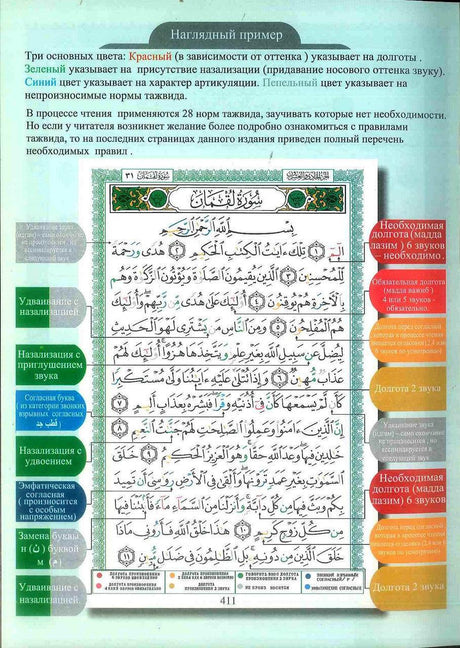 Наглядный пример
Три основных цвета: Красный (в зависимости от оттенка ) указывает на долготы .
Зеленый указывает на присутствие назализации (придавание носового оттенка звуку).
Синий цвет указывает на характер артикуляции. Пепельный цвет указывает на
непроизносимые нормы тажвида.
В процессе чтения применяются 28 норм тажвида, заучивать которые нет необходимости.
Но если у читателя возникнет желание более подробно ознакомиться с правилами
тажвида, то на последних страницах данного издания приведен полный перечень
необходимых правил .
سُورَةُ لُقْمَان ٣١
سُورَةُ لُقْمَان
بِسْمِ ٱللَّهِ ٱلرَّحْمَٰنِ ٱلرَّحِيمِ
الٓمٓ ١ تِلْكَ ءَايَٰتُ ٱلْكِتَٰبِ ٱلْحَكِيمِ ٢ هُدًى وَرَحْمَةً
لِّلْمُحْسِنِينَ ٣ ٱلَّذِينَ يُقِيمُونَ ٱلصَّلَوٰةَ وَيُؤْتُونَ ٱلزَّكَوٰةَ وَهُم
بِٱلْءَاخِرَةِ هُمْ يُوقِنُونَ ٤ أُو۟لَٰٓئِكَ عَلَىٰ هُدًى مِّن رَّبِّهِمْ وَأُو۟لَٰٓئِكَ
هُمُ ٱلْمُفْلِحُونَ ٥ وَمِنَ ٱلنَّاسِ مَن يَشْتَرِى لَهْوَ ٱلْحَدِيثِ
لِيُضِلَّ عَن سَبِيلِ ٱللَّهِ بِغَيْرِ عِلْمٍ وَيَتَّخِذَهَا هُزُوًا أُو۟لَٰٓئِكَ لَهُمْ
عَذَابٌ مُّهِينٌ ٦ وَإِذَا تُتْلَىٰ عَلَيْهِ ءَايَٰتُنَا وَلَّىٰ مُسْتَكْبِرًا
كَأَن لَّمْ يَسْمَعْهَا كَأَنَّ فِىٓ أُذُنَيْهِ وَقْرًا فَبَشِّرْهُ بِعَذَابٍ أَلِيمٍ ٧
إِنَّ ٱلَّذِينَ ءَامَنُوا۟ وَعَمِلُوا۟ ٱلصَّٰلِحَٰتِ لَهُمْ جَنَّٰتُ ٱلنَّعِيمِ ٨
خَٰلِدِينَ فِيهَا وَعْدَ ٱللَّهِ حَقًّا وَهُوَ ٱلْعَزِيزُ ٱلْحَكِيمُ ٩ خَلَقَ
ٱلسَّمَٰوَٰتِ بِغَيْرِ عَمَدٍ تَرَوْنَهَا وَأَلْقَىٰ فِى ٱلْأَرْضِ رَوَٰسِىَ أَن تَمِيدَ
بِكُمْ وَبَثَّ فِيهَا مِن كُلِّ دَآبَّةٍ وَأَنزَلْنَا مِنَ ٱلسَّمَآءِ مَآءً فَأَنۢبَتْنَا فِيهَا
مِن كُلِّ زَوْجٍ كَرِيمٍ ١٠ هَٰذَا خَلْقُ ٱللَّهِ فَأَرُونِى مَاذَا
خَلَقَ ٱلَّذِينَ مِن دُونِهِۦ بَلِ ٱلظَّٰلِمُونَ فِى ضَلَٰلٍ مُّبِينٍ ١١
411
Удваивание с
назализацией
Назализация с
приглушением
звука
Согласная буква
( из категории звонких
взрывных согласных
قطب جد )
Назализация с
удвоением
Эмфатическая
согласная
( произносится
с особым
напряжением)
Замена буквы
н (ن) буквой
м (م)
Удваивание с
назализацией.
Необходимая
долгота (мадда
лазим ) 6 звуков
– необходимо .
Обязательная долгота
(мадда важиб )
4 или 5 звуков -
обязательно.
Долгота 2 звука
Необходимая
долгота (мадда
лазим) 6 звуков
Долгота 2 звука